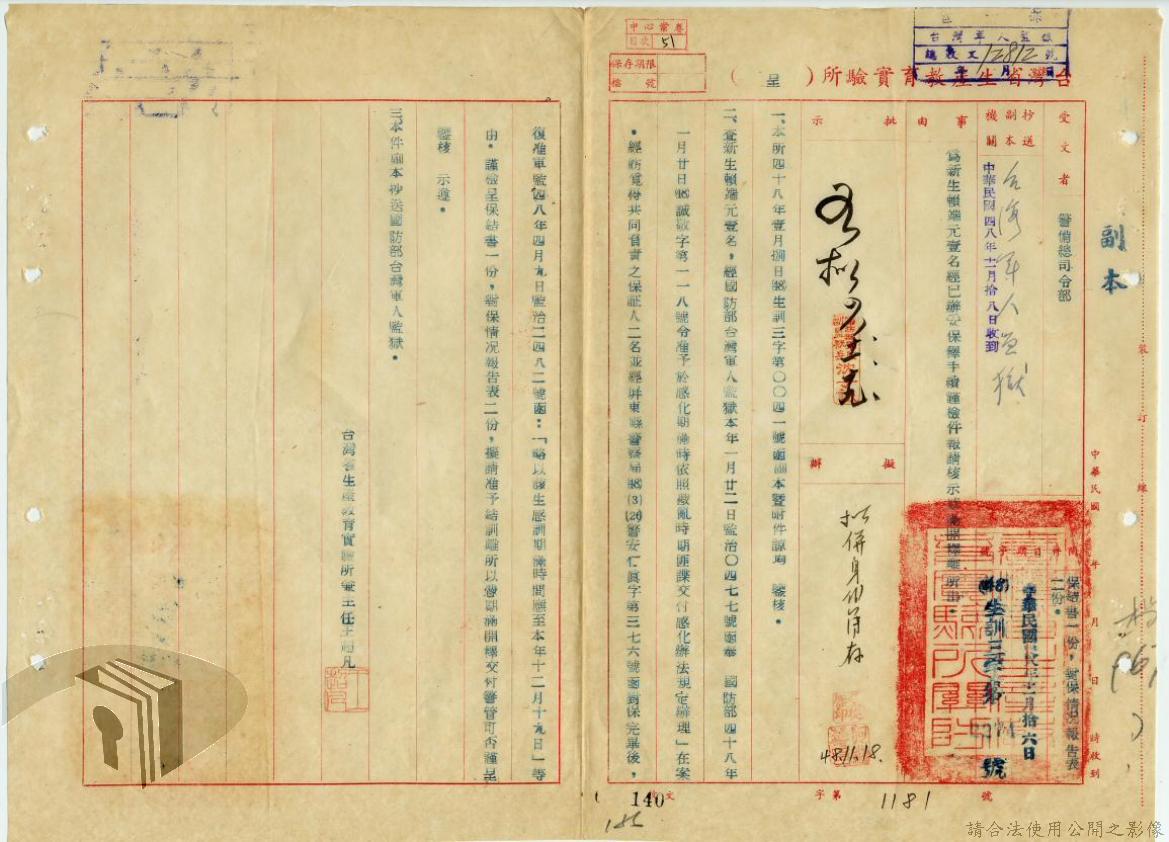 中心業卷
目次 51
保存期限
檔號
台灣軍人監獄
總義文12812號
年 月 日
台灣省生產教育實驗所(呈)
副本
受文者 警備總司令部
抄送副本機關 台灣軍人監獄
中華民國四八年十一月拾八日收到
事由 為新生賴端元壹名經已辦妥保釋手續謹檢件報請核示
保結書一份,對保情況報告表二份。
中華民國四八年十一月拾六日
(48)生訓三字第 號
批示
擬辦
擬併身份簿存
48.11.18.
一、本所四十八年壹月捌日(48)生訓三字第〇〇四一號函副本暨附件諒均 鑒核。
二、查新生賴端元壹名,經國防部台灣軍人監獄本年一月廿二日監治〇四七七號函奉 國防部四十八年
一月廿日(48)誠敬字第一一八號令准予於感化期滿時依照戡亂時期匪諜交付感化辦法規定辦理」在案
。經飭覓得共同負責之保証人二名並經屏東縣警察局(48)(3)(26)警安仁眞字第三七六號函對保完畢後,
復准軍監四八年四月九日監治二四八二號函:「略以該生感訓期滿時間應至本年十二月十九日」等
由。謹檢呈保結書一份,對保情況報告表二份,擬請准予結訓離所以便期滿開釋交付警管可否謹呈
鑒核 示遵。
三、本件副本抄送國防部台灣軍人監獄。
台灣省生產教育實驗所兼主任王
裝訂線
中華民國 年 月 日 時收到
140
文字第 1181 號
請合法使用公開之影像